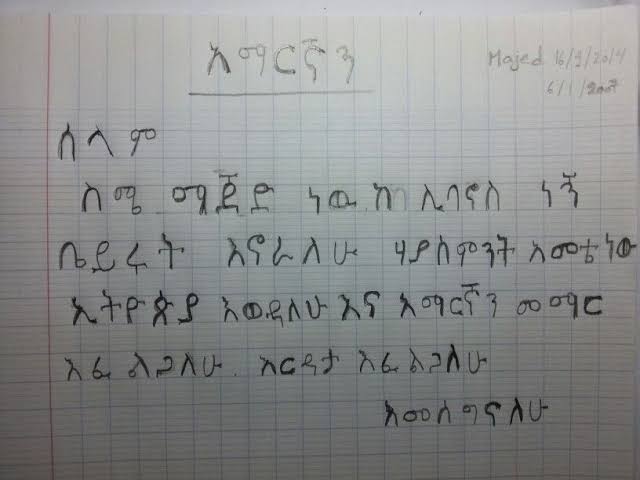 አማርኛን
Majed 16/9/2014
6/1/2007
ሰላም
ስሜ ማጂድ ነው ከ ሊባኖስ ነኝ
ቤይሩት እኖራለሁ ሃያ ስምንት አመቴ ነው
ኢትዮጵያ እወዳለሁ እና አማርኛን መማር
እፈልጋለሁ. እርዳታ እፈልጋለሁ
አመሰግናለሁ